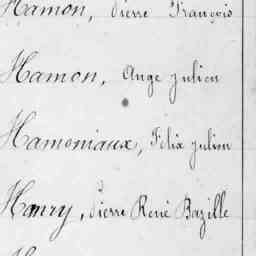 Hamon, Pierre François
Hamon, Ange Julien
Hamoniaux, Félix Julien
Hanry, Pierre René Bazille